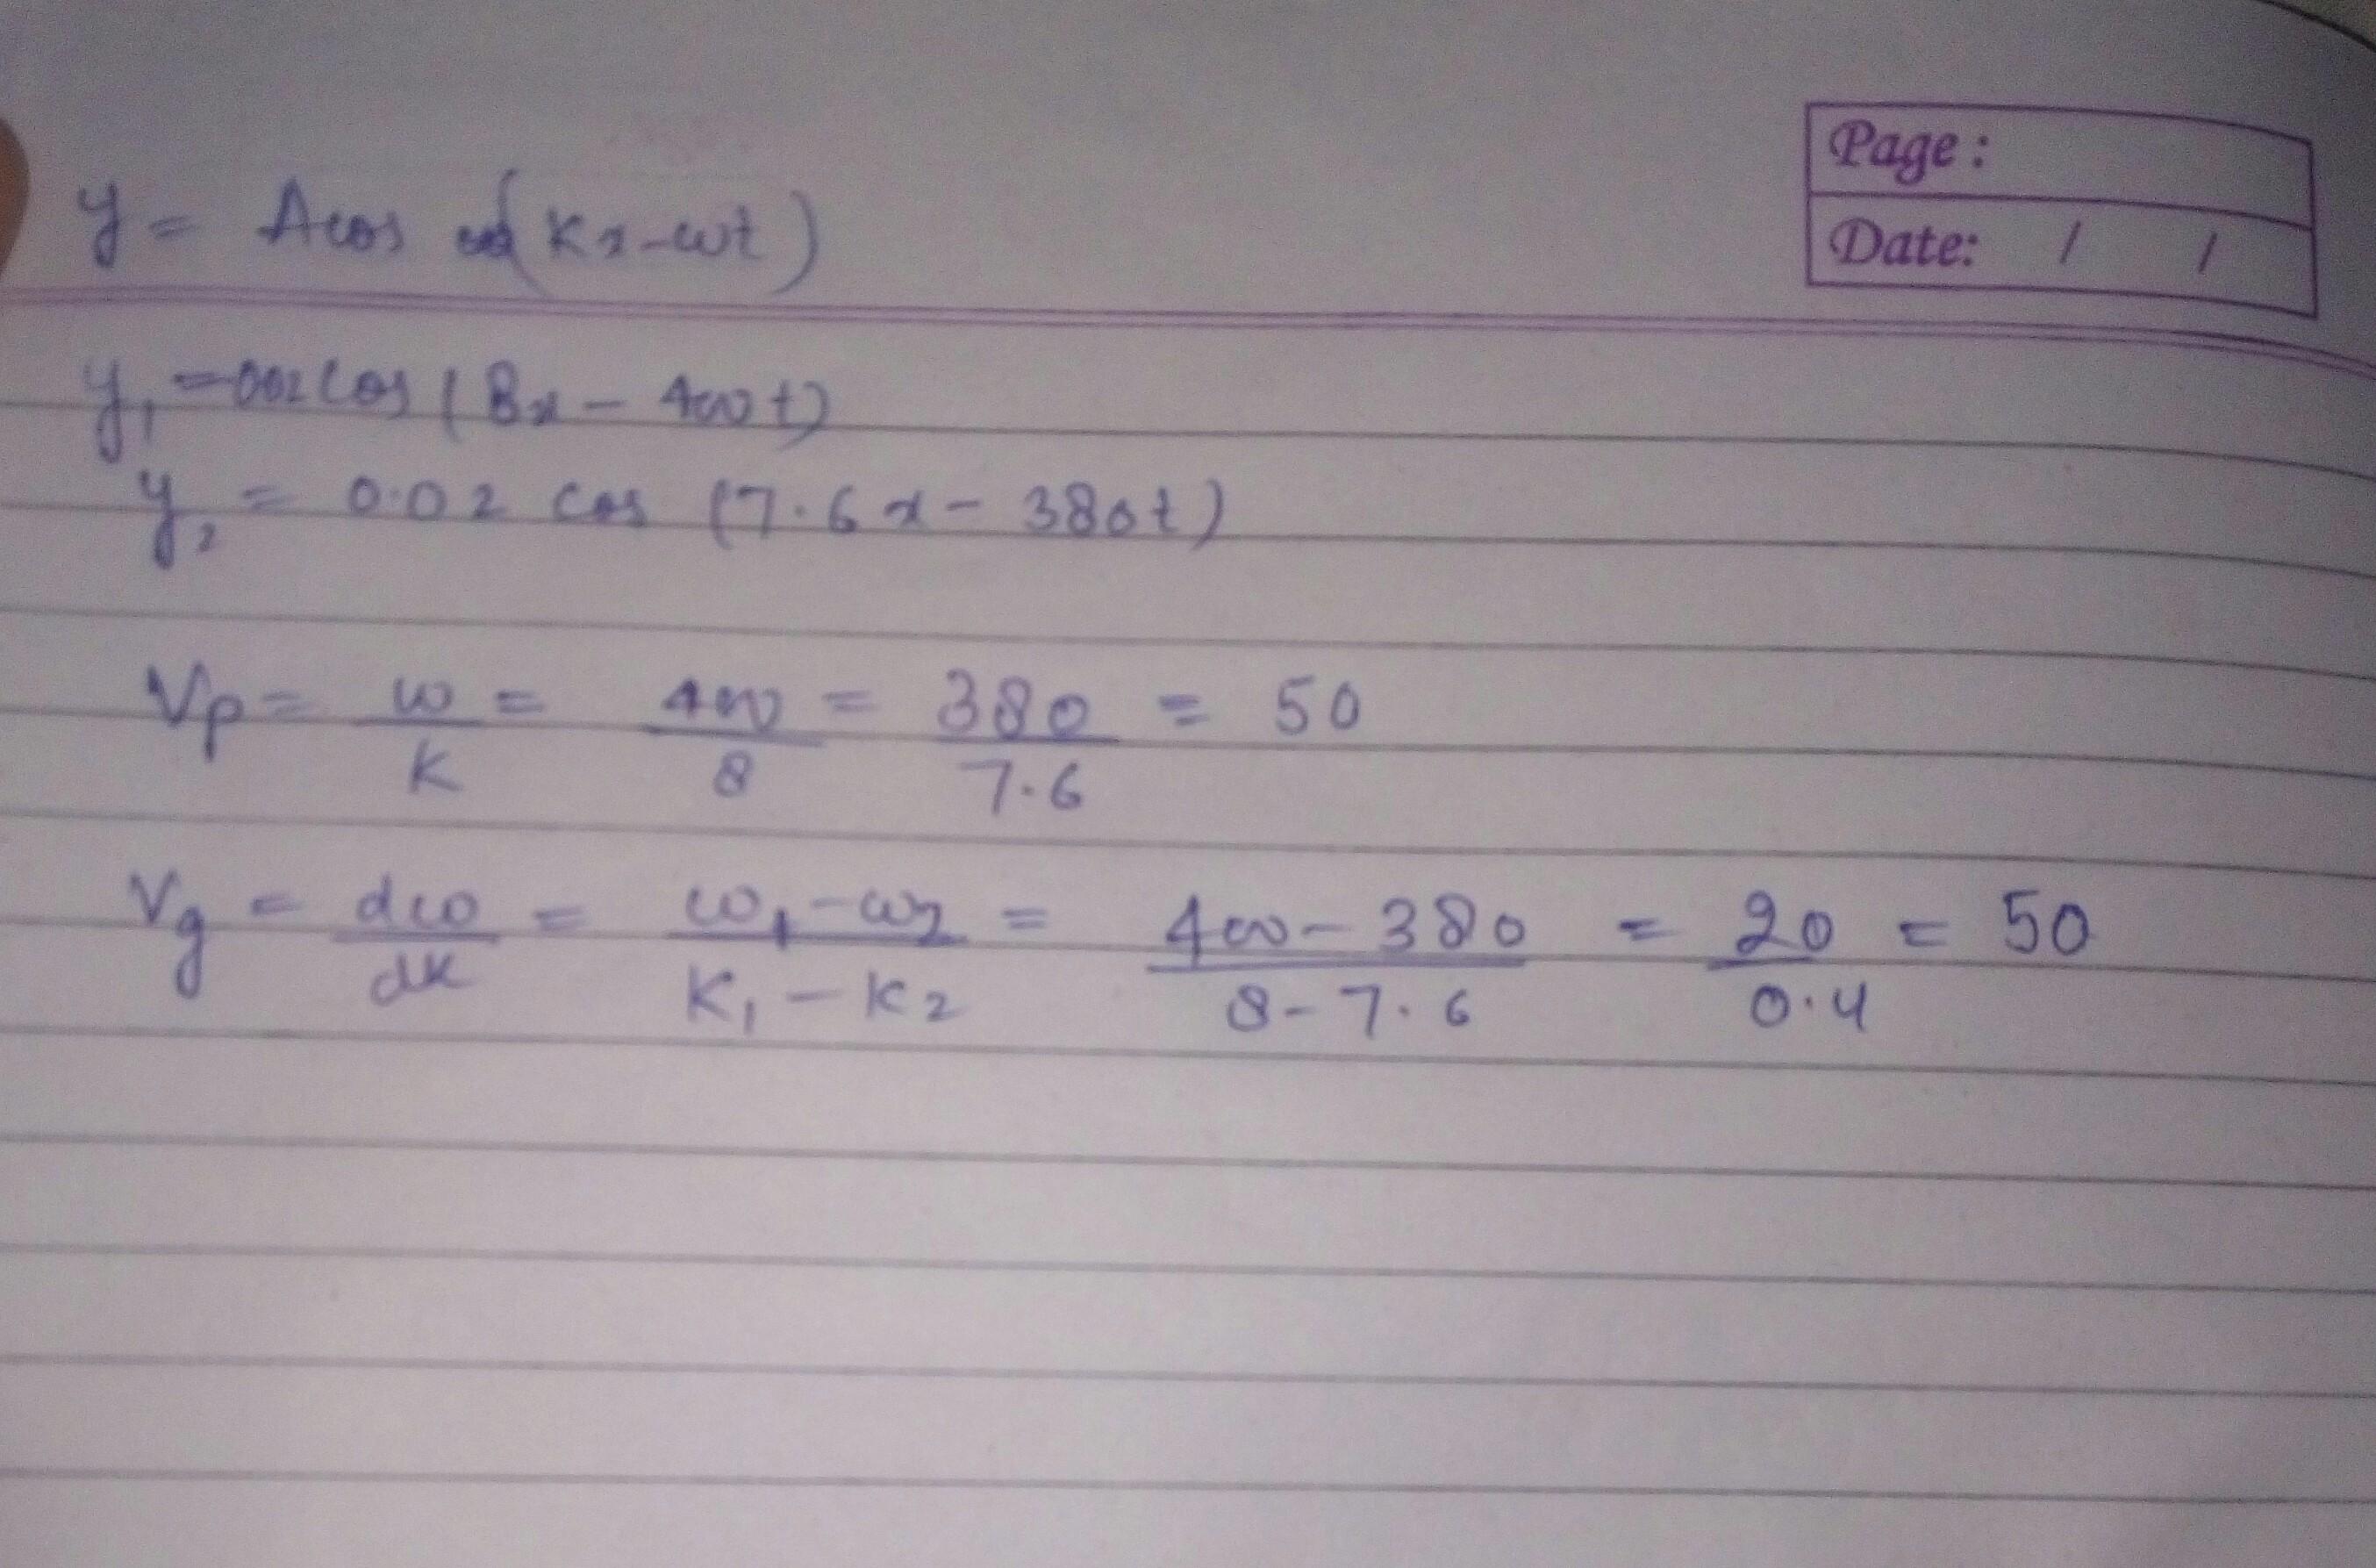 Page :
Date: / /
y = A cos (kx-ωt)
y₁ = 002 cos (8x - 400t)
y₂ = 0.02 cos (7.6x - 380t)
Vp = ω/k = 400/8 = 380/7.6 = 50
Vg = dω/dk = ω₁-ω₂/K₁-K₂ = 400-380/8-7.6 = 20/0.4 = 50